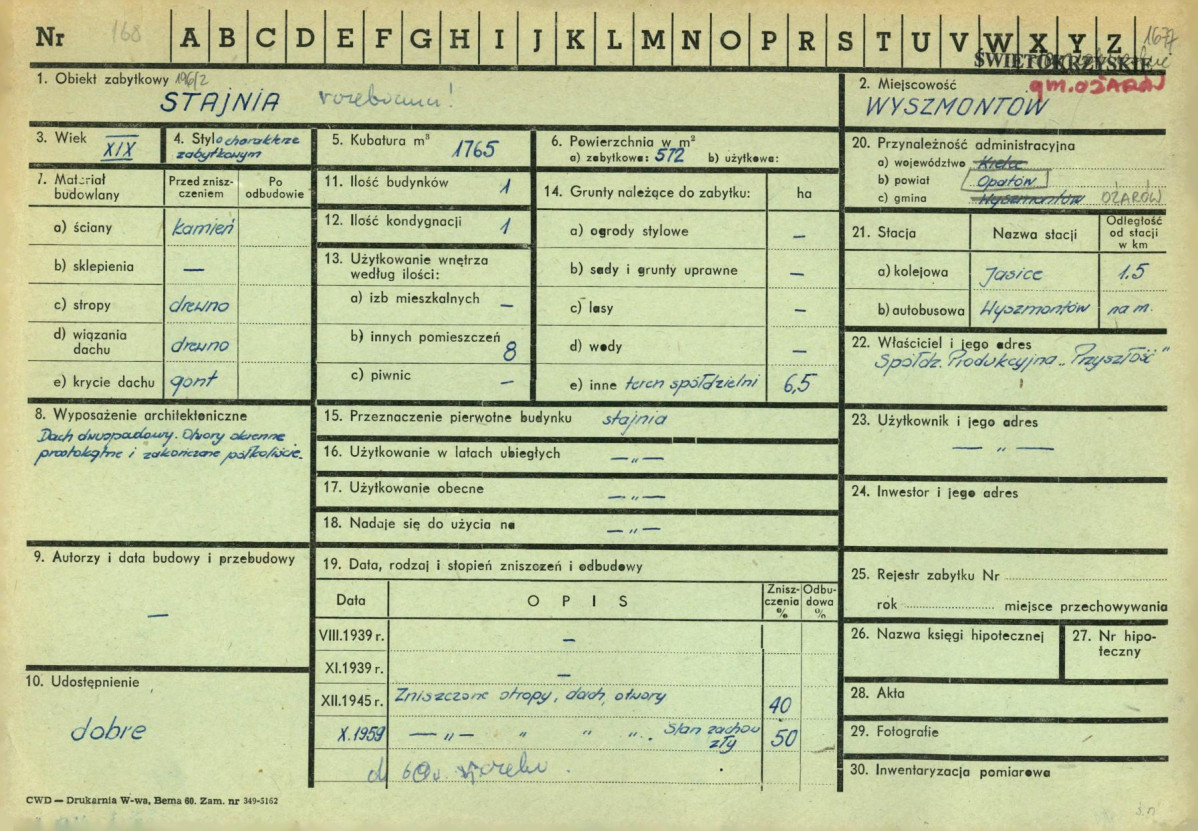 Nr 168 A B C D E F G H I J K L M N O P R S T U V W X Y Z 1677
ŚWIĘTOKRZYSKIE
1. Obiekt zabytkowy 196/2
STAJNIA
2. Miejscowość gm. OŻARÓW
WYSZMONTÓW
3. Wiek XIX
4. Styl o charakterze zabytkowym
5. Kubatura m³ 1765
6. Powierzchnia w m²
a) zabytkowa: 572 b) użytkowa:
7. Materiał budowlany
Przed zniszczeniem
Po odbudowie
a) ściany kamień
b) sklepienia —
c) stropy drewno
d) wiązania dachu drewno
e) krycie dachu gont
8. Wyposażenie architektoniczne
Dach dwuspadowy. Otwory okienne
prostokątne i zakończone półkoliście.
9. Autorzy i data budowy i przebudowy
—
10. Udostępnienie
dobre
11. Ilość budynków 1
12. Ilość kondygnacji 1
13. Użytkowanie wnętrza
według ilości:
a) izb mieszkalnych —
b) innych pomieszczeń 8
c) piwnic —
14. Grunty należące do zabytku: ha
a) ogrody stylowe —
b) sady i grunty uprawne —
c) lasy —
d) wody —
e) inne teren spółdzielni 6,5
15. Przeznaczenie pierwotne budynku stajnia
16. Użytkowanie w latach ubiegłych — „ —
17. Użytkowanie obecne — „ —
18. Nadaje się do użycia na — „ —
19. Data, rodzaj i stopień zniszczeń i odbudowy
Data OPIS Zniszczenia % Odbudowa %
VIII.1939 r. —
XI.1939 r. —
XII.1945 r. Zniszczone stropy, dach, otwory 40
X.1959 — „ — „ „ „. Stan zachow. zły 50
20. Przynależność administracyjna
a) województwo Kielce
b) powiat Opatów
c) gmina Wyszmontów OŻARÓW
21. Stacja Nazwa stacji Odległość od stacji w km
a) kolejowa Jasice 1.5
b) autobusowa Wyszmontów na m.
22. Właściciel i jego adres
Spółdz. Produkcyjna „Przyszłość"
23. Użytkownik i jego adres
— „ —
24. Inwestor i jego adres
25. Rejestr zabytku Nr
rok miejsce przechowywania
26. Nazwa księgi hipotecznej
27. Nr hipoteczny
28. Akta
29. Fotografie
30. Inwentaryzacja pomiarowa
CWD — Drukarnia W-wa, Bema 60. Zam. nr 349-5162